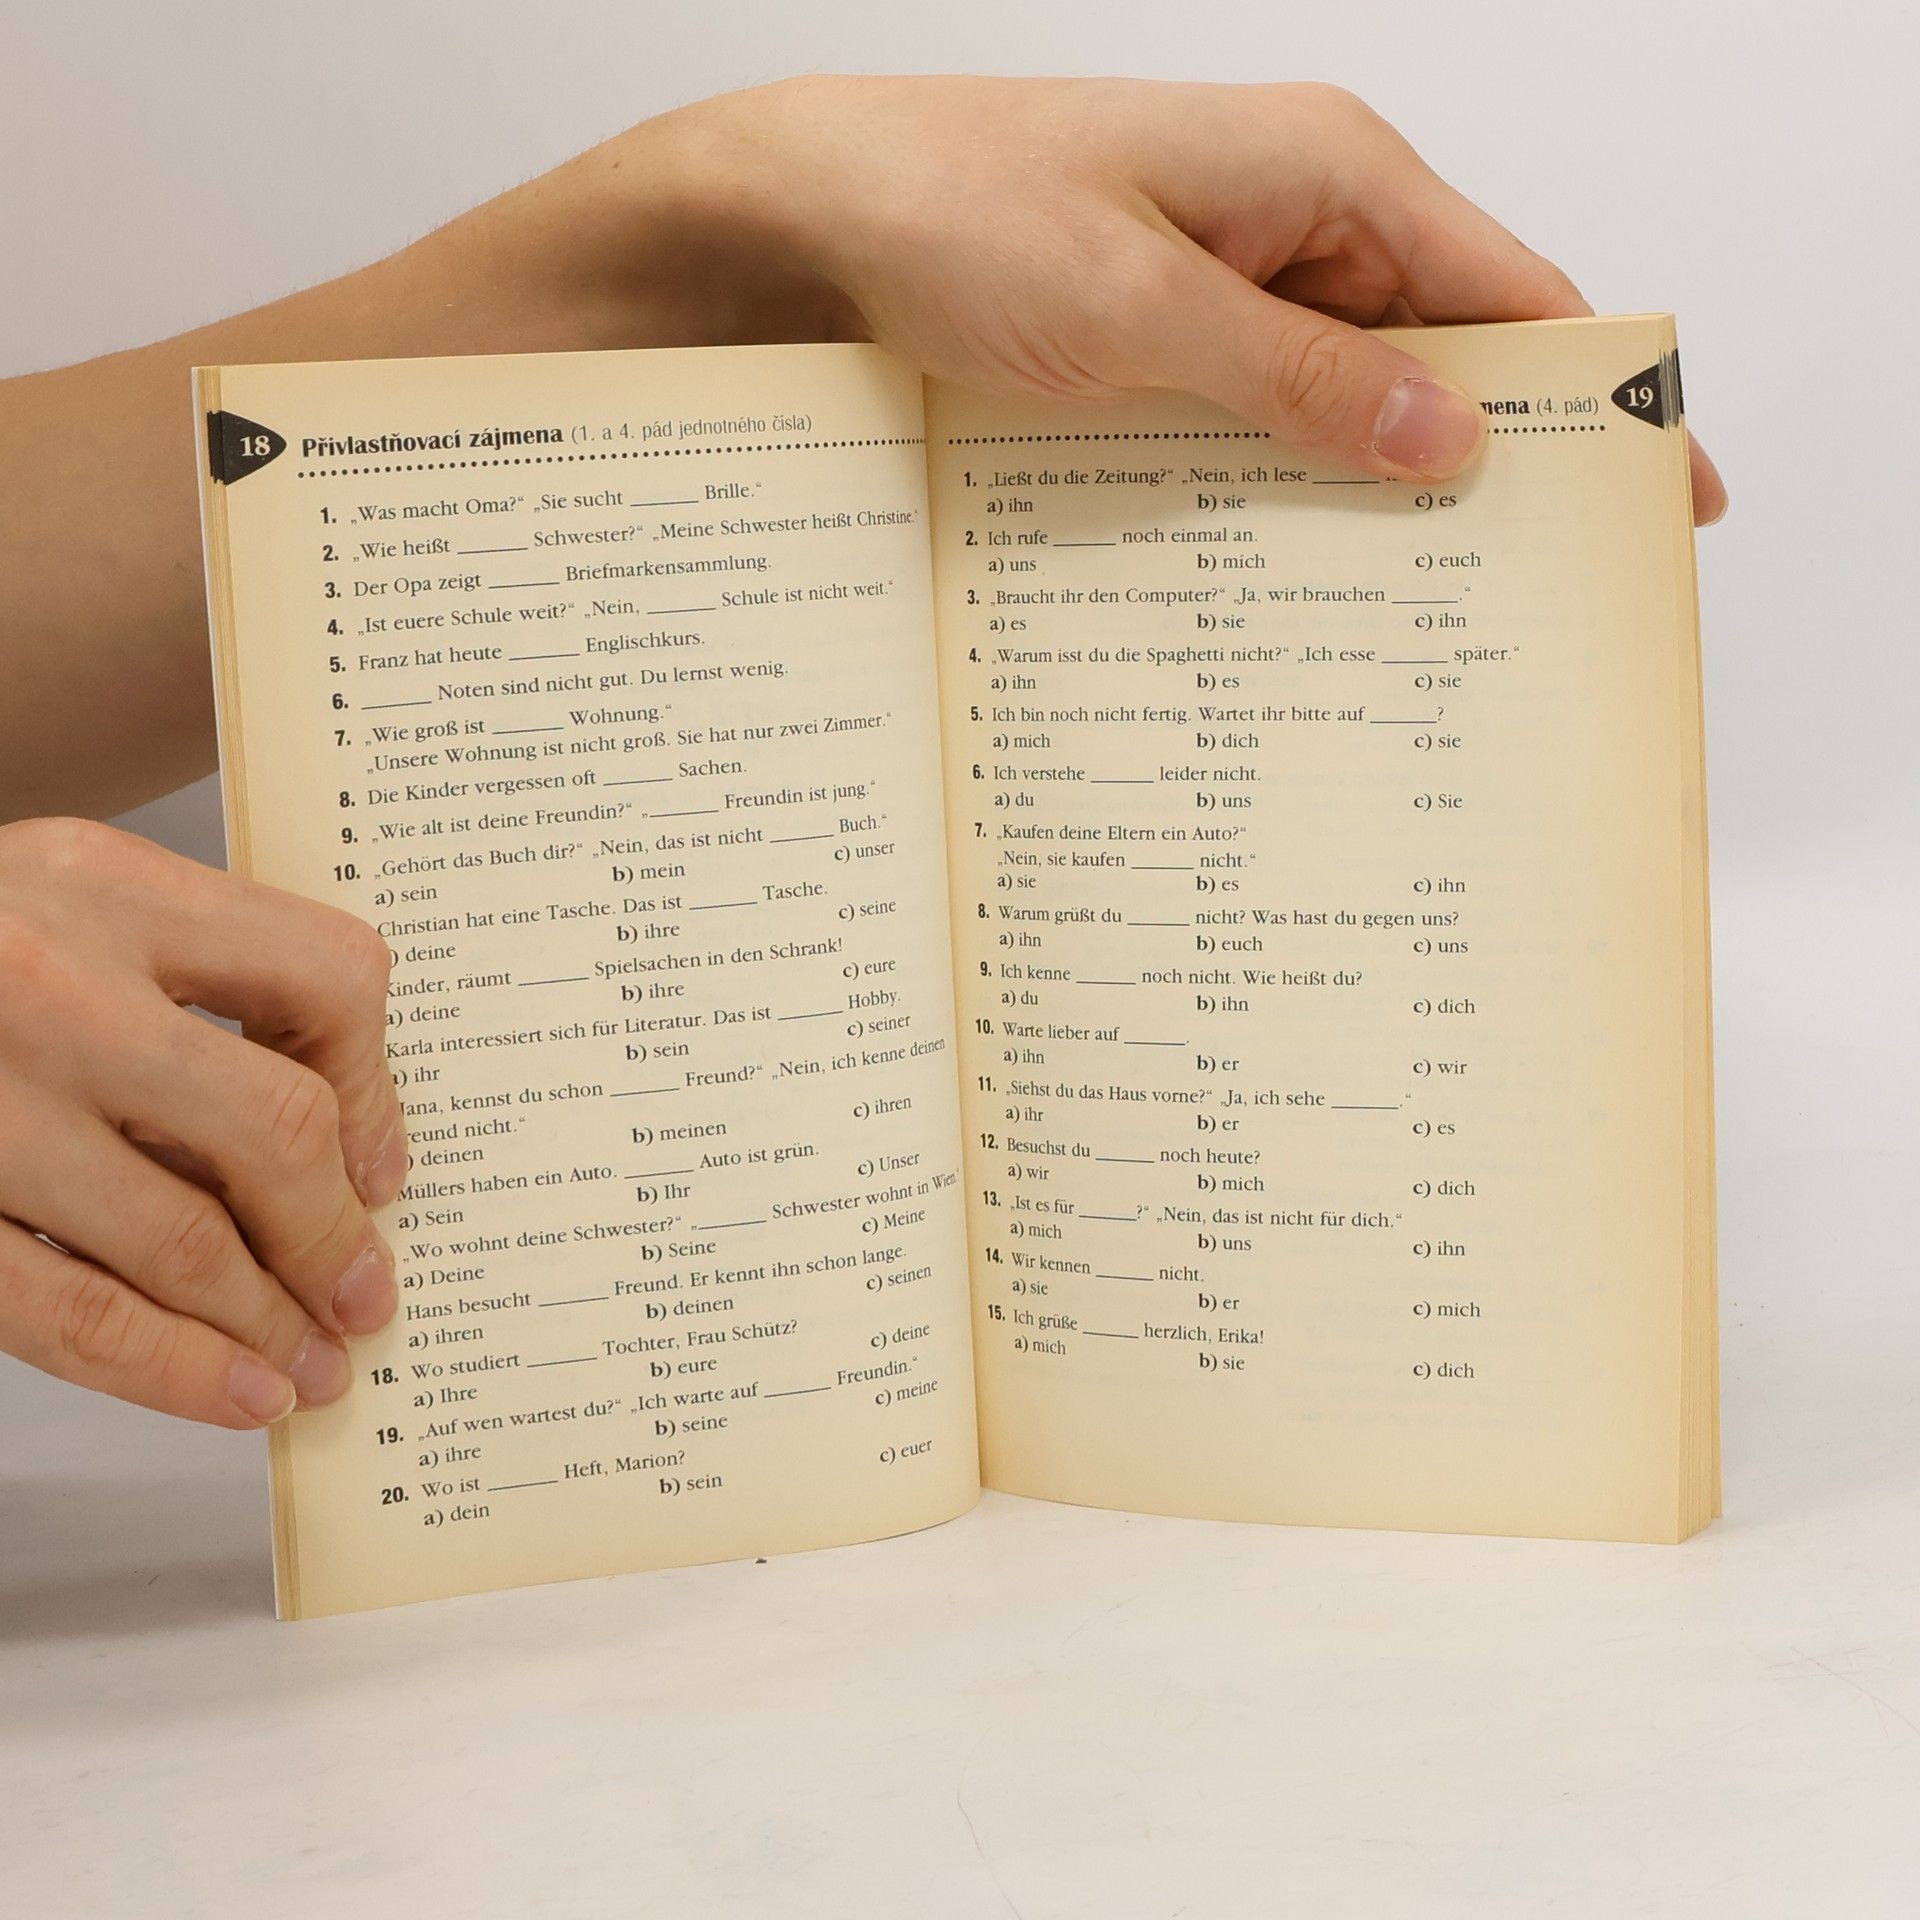 18 Přivlastňovací zájmena (1. a 4. pád jednotného čísla)
1. „Was macht Oma?“ „Sie sucht ______ Brille.“
2. „Wie heißt ______ Schwester?“ „Meine Schwester heißt Christine.“
3. Der Opa zeigt ______ Briefmarkensammlung.
4. „Ist euere Schule weit?“ „Nein, ______ Schule ist nicht weit.“
5. Franz hat heute ______ Englischkurs.
6. ______ Noten sind nicht gut. Du lernst wenig.
7. „Wie groß ist ______ Wohnung.“
„Unsere Wohnung ist nicht groß. Sie hat nur zwei Zimmer.“
8. Die Kinder vergessen oft ______ Sachen.
9. „Wie alt ist deine Freundin?“ „______ Freundin ist jung.“
10. „Gehört das Buch dir?“ „Nein, das ist nicht ______ Buch.“
a) sein b) mein c) unser
Christian hat eine Tasche. Das ist ______ Tasche.
) deine b) ihre c) seine
Kinder, räumt ______ Spielsachen in den Schrank!
a) deine b) ihre c) eure
Karla interessiert sich für Literatur. Das ist ______ Hobby.
a) ihr b) sein c) seiner
Jana, kennst du schon ______ Freund?“ „Nein, ich kenne deinen
reund nicht.“
) deinen b) meinen c) ihren
Müllers haben ein Auto. ______ Auto ist grün.
a) Sein b) Ihr c) Unser
„Wo wohnt deine Schwester?“ „______ Schwester wohnt in Wien.“
a) Deine b) Seine c) Meine
Hans besucht ______ Freund. Er kennt ihn schon lange.
a) ihren b) deinen c) seinen
18. Wo studiert ______ Tochter, Frau Schütz?
a) Ihre b) eure c) deine
19. „Auf wen wartest du?“ „Ich warte auf ______ Freundin.“
a) ihre b) seine c) meine
20. Wo ist ______ Heft, Marion?
a) dein b) sein c) euer
mena (4. pád) 19
1. „Ließt du die Zeitung?“ „Nein, ich lese ______
a) ihn b) sie c) es
2. Ich rufe ______ noch einmal an.
a) uns b) mich c) euch
3. „Braucht ihr den Computer?“ „Ja, wir brauchen ______.“
a) es b) sie c) ihn
4. „Warum isst du die Spaghetti nicht?“ „Ich esse ______ später.“
a) ihn b) es c) sie
5. Ich bin noch nicht fertig. Wartet ihr bitte auf ______?
a) mich b) dich c) sie
6. Ich verstehe ______ leider nicht.
a) du b) uns c) Sie
7. „Kaufen deine Eltern ein Auto?“
„Nein, sie kaufen ______ nicht.“
a) sie b) es c) ihn
8. Warum grüßt du ______ nicht? Was hast du gegen uns?
a) ihn b) euch c) uns
9. Ich kenne ______ noch nicht. Wie heißt du?
a) du b) ihn c) dich
10. Warte lieber auf ______.
a) ihn b) er c) wir
11. „Siehst du das Haus vorne?“ „Ja, ich sehe ______.“
a) ihr b) er c) es
12. Besuchst du ______ noch heute?
a) wir b) mich c) dich
13. „Ist es für ______?“ „Nein, das ist nicht für dich.“
a) mich b) uns c) ihn
14. Wir kennen ______ nicht.
a) sie b) er c) mich
15. Ich grüße ______ herzlich, Erika!
a) mich b) sie c) dich